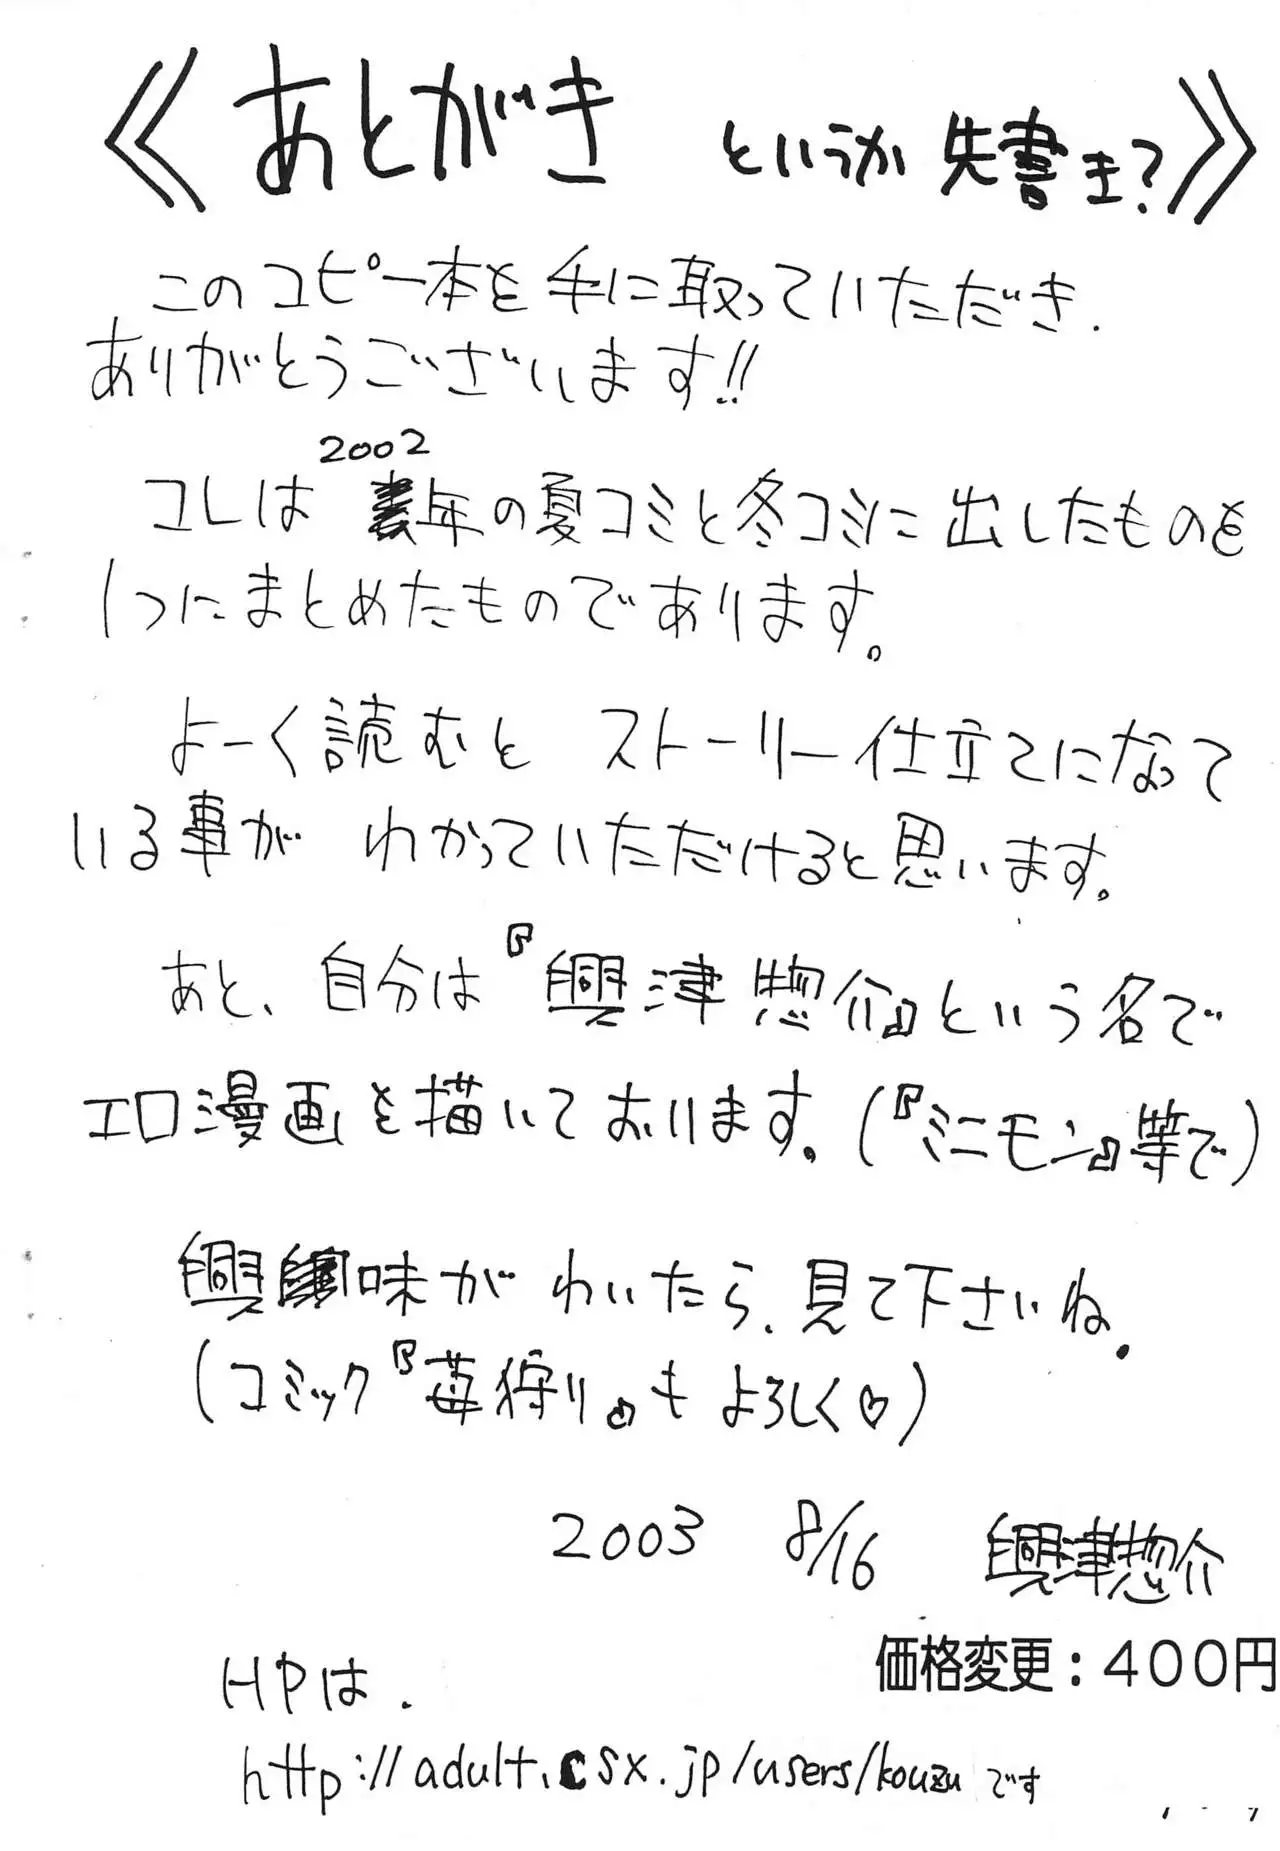 ≪あとがき というか 先書き?≫
このコピー本を手に取っていただき.
ありがとうございます!!
2002
コレは 年の夏コミと冬コミに出したものを
1つにまとめたものであります。
よーく読むと ストーリー仕立てになって
いる事が わかっていただけると思います。
あと、自分は『興津惣介』という名で
エロ漫画を描いております。(『ミニモン』等で)
興味がわいたら、見て下さいね.
(コミック『苺狩り』もよろしく♡)
2003 8/16 興津惣介
価格変更：400円
HPは.
http://adult.csx.jp/users/kouzu です